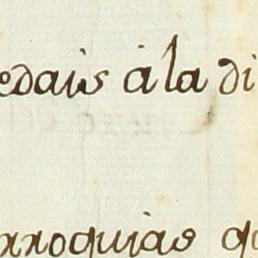 edais á la di
rroquias q